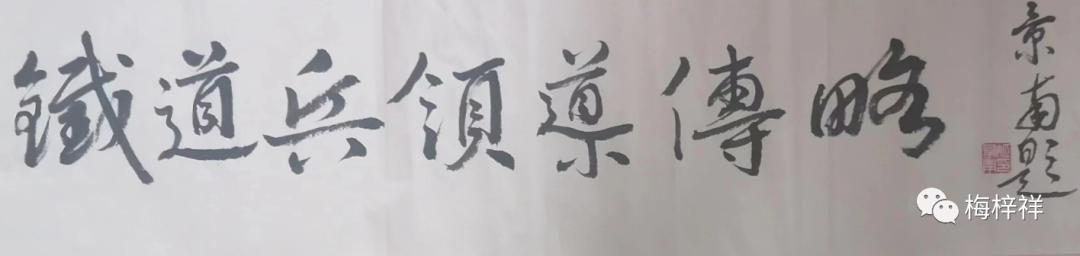 鐵道兵領導傳略
景南題
梅梓祥